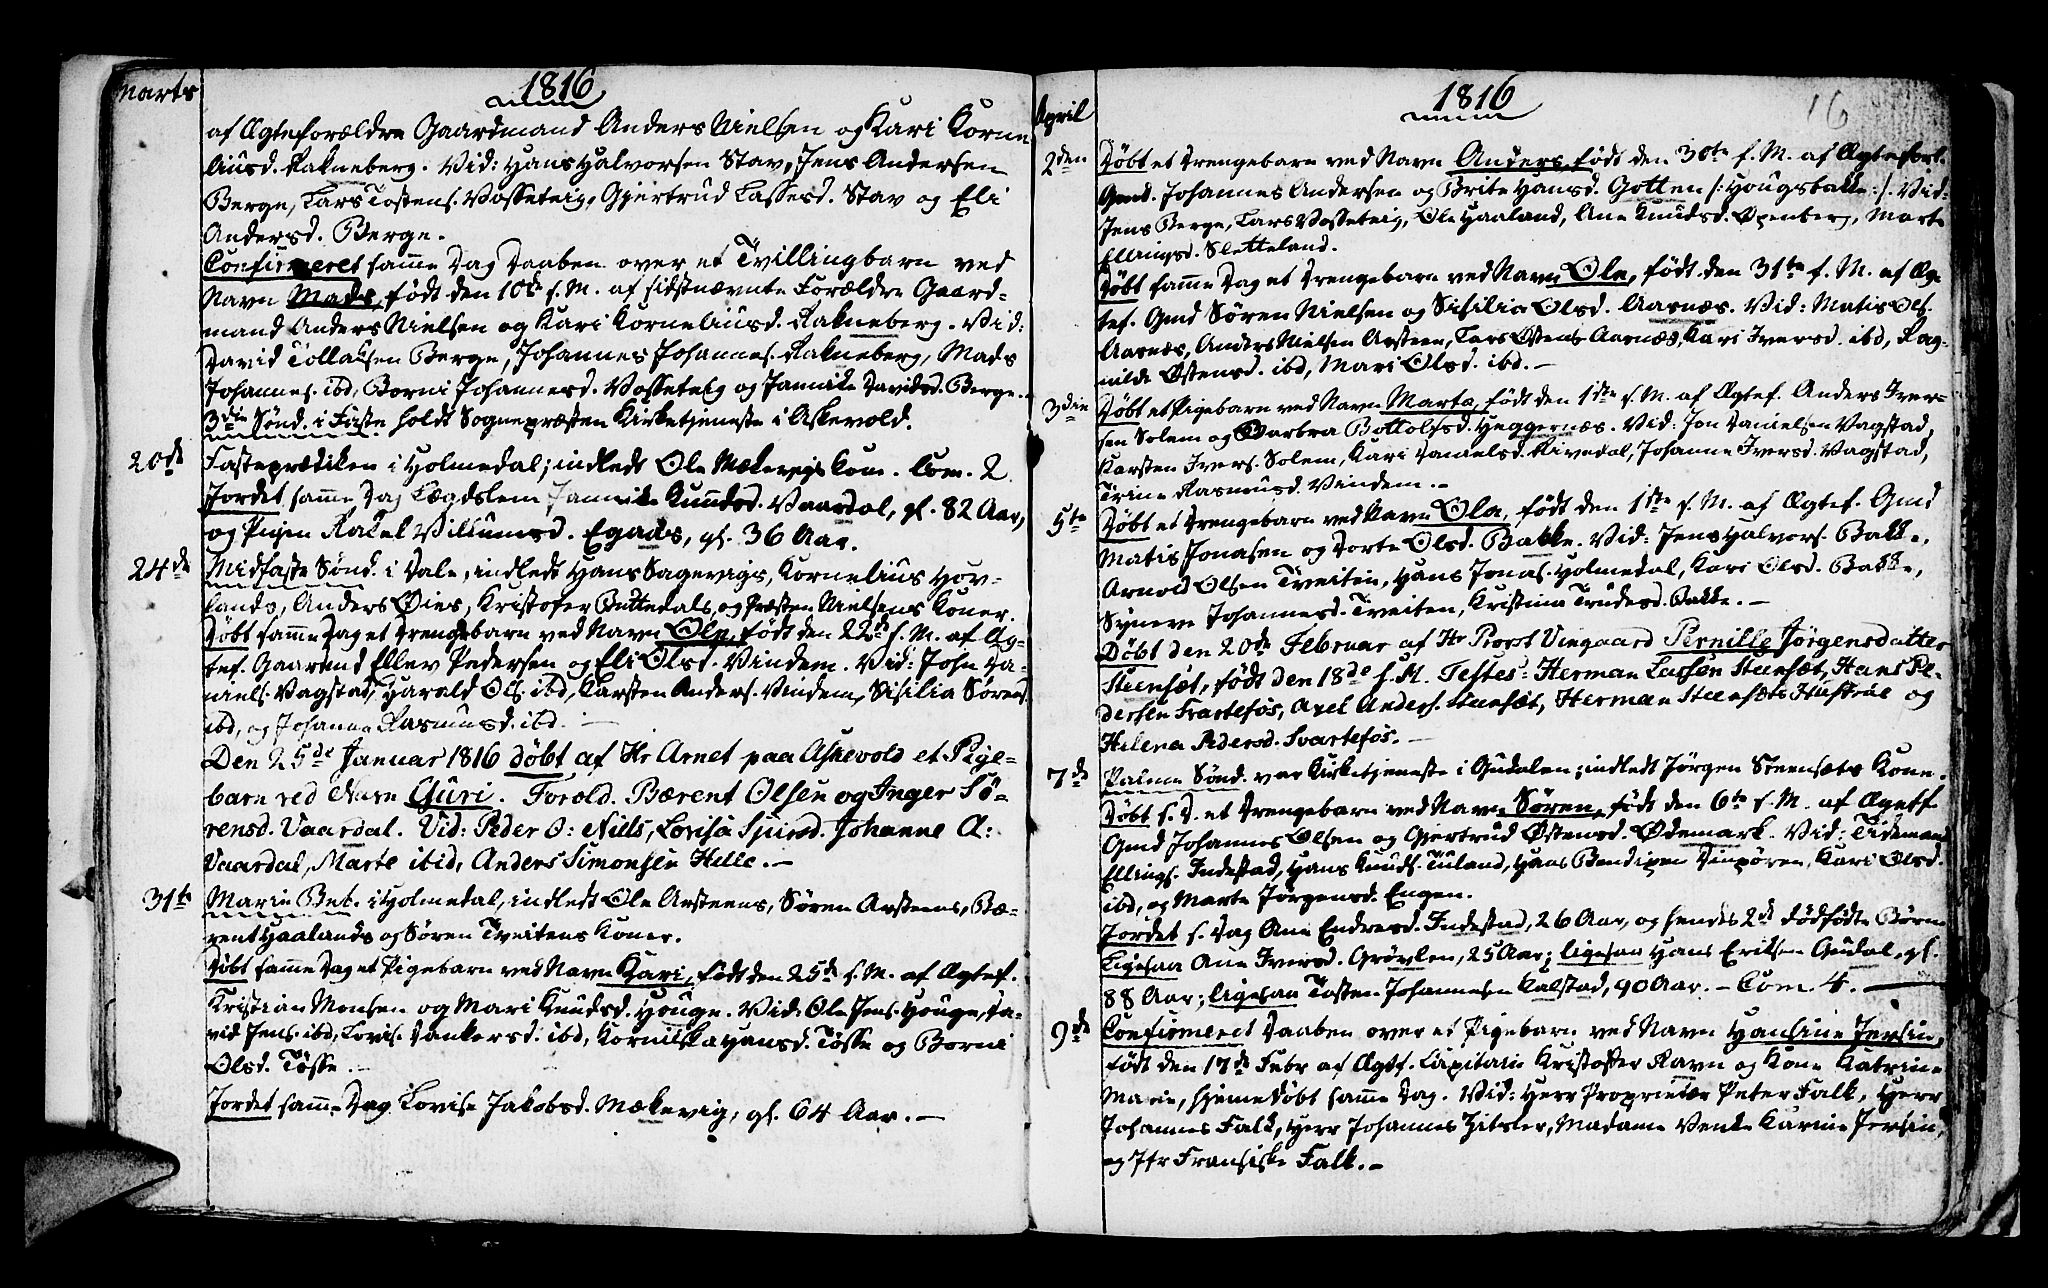 Marts
1816
af Ægteforældre Gaardmand Anders Nielsen og Kari Korne
liusd. Rakneberg. Vid: Hans Halvorsen Stav, Jens Andersen
Berge, Lars Tostens. Vosseteig, Gjertrud Lassesd. Stav og Eli
Andersd. Berge.
Confirmeret samme Dag Daaben over et Tvillingbarn ved
Navn Mads, født den 10de s. M. af sidstnævnte Forældre Gaard-
mand Anders Nielsen og Kari Korneliusd. Rakneberg. Vid:
David Tollaksen Berge, Johannes Johannes. Rakneberg, Mads
Johannes. ibd, Borni Johannesd. Vosseteig og Jannike Davidsd. Berge.
3die Sønd. i Faste holdt Sognepræsten Kirketjeneste i Askevold.
20de Fasteprædiken i Holmedal; indledt Ole Mækevigs Kone. Com. 2
Jordet samme Dag Lægdslem Jannike Knudsd. Vaardal, gl. 82 Aar,
og Pigen Rakel Villumsd. Egads, gl. 36 Aar.
24de Midfaste Sønd. i Dale, indledt Hans Sagevigs, Kornelius Hov-
lands, Anders Øies, Kristofer Bøttedals, og Præsten Nielsens Koner.
Døbt samme Dag et Drengebarn ved Navn Ole, født den 22de s. M. af Æg-
tef. Gaarmd Ellev Pedersen og Eli Olsd. Vindem. Vid: John Da-
niels. Vagstad, Harald Ols. ibd, Karsten Anders. Vindem, Sisilia Sørens.
ibd, og Johanne Rasmusd. ibd. —
Den 25de Januar 1816 døbt af Hr Arnet paa Askevold et Pige-
barn ved Navn Guri. Forold. Bærent Olsen og Inger Sö-
rensd. Vaardal. Vid: Peder O: Niels, Lovisa Sjursd. Johanne A:
Vaardal, Marte ibid, Anders Simonsen Helle. —
31te Mariæ Bud. i Holmedal, indledt Ole Arsteens, Søren Arsteens, Bæ-
rent Haalands og Søren Tveitens Koner.
Døbt samme Dag et Pigebarn ved Navn Kari, født den 25de s. M. af Ægtef.
Kristian Monsen og Mari Knudsd. Houge. Vid: Ole Jens. Houge, Da-
vid Jens. ibd, Lovis. Dankersd. ibd, Kornelska Hansd. Tøsse og Borni
Olsd. Tøsse. —
Jordet samme Dag Lovise Jakobsd. Mækevig, gl. 64 Aar. —
April
1816
16
2den Døbt et Drengebarn ved Navn Anders, født den 30te f. M. af Ægteforl.
Gmd. Johannes Andersen og Brite Hansd. Gotten /: Hougsbakke:/. Vid:
Jens Berge, Lars Vosseteig, Ole Haaland, Ane Knudsd. Openberg, Marte
Ellingsd. Sletteland.
Døbt samme Dag et Drengebarn ved Navn Ole, født den 31te f. M. af Æg
tef. Gmd Søren Nielsen og Sisilia Olsd. Aarnæs. Vid: Matis Ols.
Aarnæs, Anders Nielsen Arsteen, Lars Østens. Aarnæs, Kari Iversd. ibd, Rag-
nilde Østensd. ibd, Mari Olsd. ibd. —
3die Døbt et Pigebarn ved Navn Marta, født den 1ste s. M. af Ægtef. Anders Iver-
sen Solem og Barbra Bottolfsd. Heggernæs. Vid: Jon Danielsen Vagstad,
Karsten Ivers. Solem, Kari Danielsd. Rivedal, Johanne Iversd. Vagstad,
Trine Rasmusd. Vindem. —
5te Døbt et Drengebarn ved Navn Ola, født den 1ste s. M. af Ægtef. Gmd
Matis Jonasen og Dorte Olsd. Bakke. Vid: Jens Halvors. Bakke,
Arnold Olsen Tveiten, Hans Jonas. Holmedal, Kari Olsd. Bakke,
Synneve Johannesd. Tveiten, Kristina Trudsd. Bakke. —
Døbt den 20de Februar af Hr Provst Vingaard Pernille Jørgensdatter
Steensæt, født den 18de s. M. Testes: Herman Lassen Steensæt, Hans Pe-
dersen Svartefos, Axel Anders. Steensæt, Herman Steensæts Hustrue og
Helena Pedersd. Svartefos. —
7de Palme Sønd. var Kirketjeneste i Gudalen; indledt Jörgen Steensæts Kone.
Døbt s. D. et Drengebarn ved Navn Søren, født den 6te s. M. af Ægetf
Gmd Johannes Olsen og Gjertrud Østensd. Ødemark. Vid: Tidemand
Ellings. Indestad, Hans Knuds. Tuland, Hans Bendixen Dinpören, Kari Olsd.
ibd, og Marte Jørgensd. Engen.
Jordet s. Dag Ane Endresd. Indestad, 26 Aar, og hendes 2de dødfødte Børn
Ligesaa Ane Iversd. Grøvlen, 25 Aar; ligesaa Hans Eriksen Gudal, gl.
88 Aar; ligesaa Tosten Johannesen Kalstad, 90 Aar. — Com. 4. —
9de Confirmeret Daaben over et Pigebarn ved Navn Hansine Jersin,
født den 17de Febr af Ægtf. Capitain Kristoffer Ravn og Kone Katrine
Marie, hjemmedøbt samme Dag. Vid: Herr Proprietær Peter Falk, Herr
Johannes Falk, Herr Johannes Zitzler, Madame Venke Karine Jersin,
og Jfr Fransiske Falk. —